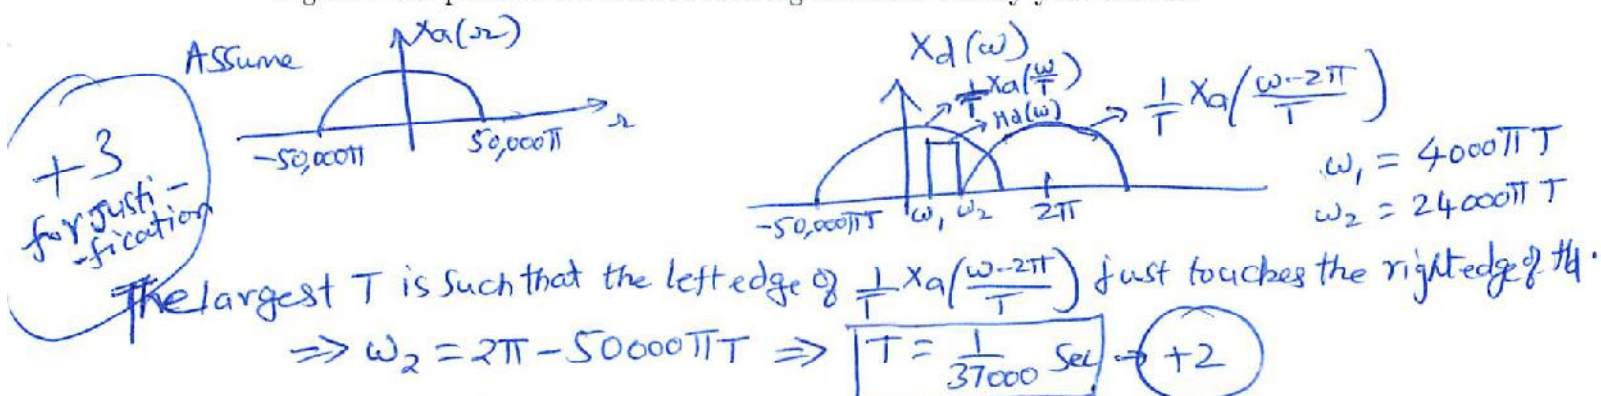 Assume
Xa(Ω)
-50,000π
50,000π
Ω
+3
for justi-
-fication
Xd(ω)
1/T Xa(ω/T)
Hd(ω)
1/T Xa((ω-2π)/T)
-50,000πT
ω₁ ω₂ 2π
ω₁ = 4000πT
ω₂ = 24000πT
The largest T is such that the left edge of 1/T Xa((ω-2π)/T) just touches the right edge of Hd.
⇒ ω₂ = 2π - 50000πT ⇒ T = 1/37000 Sec → +2